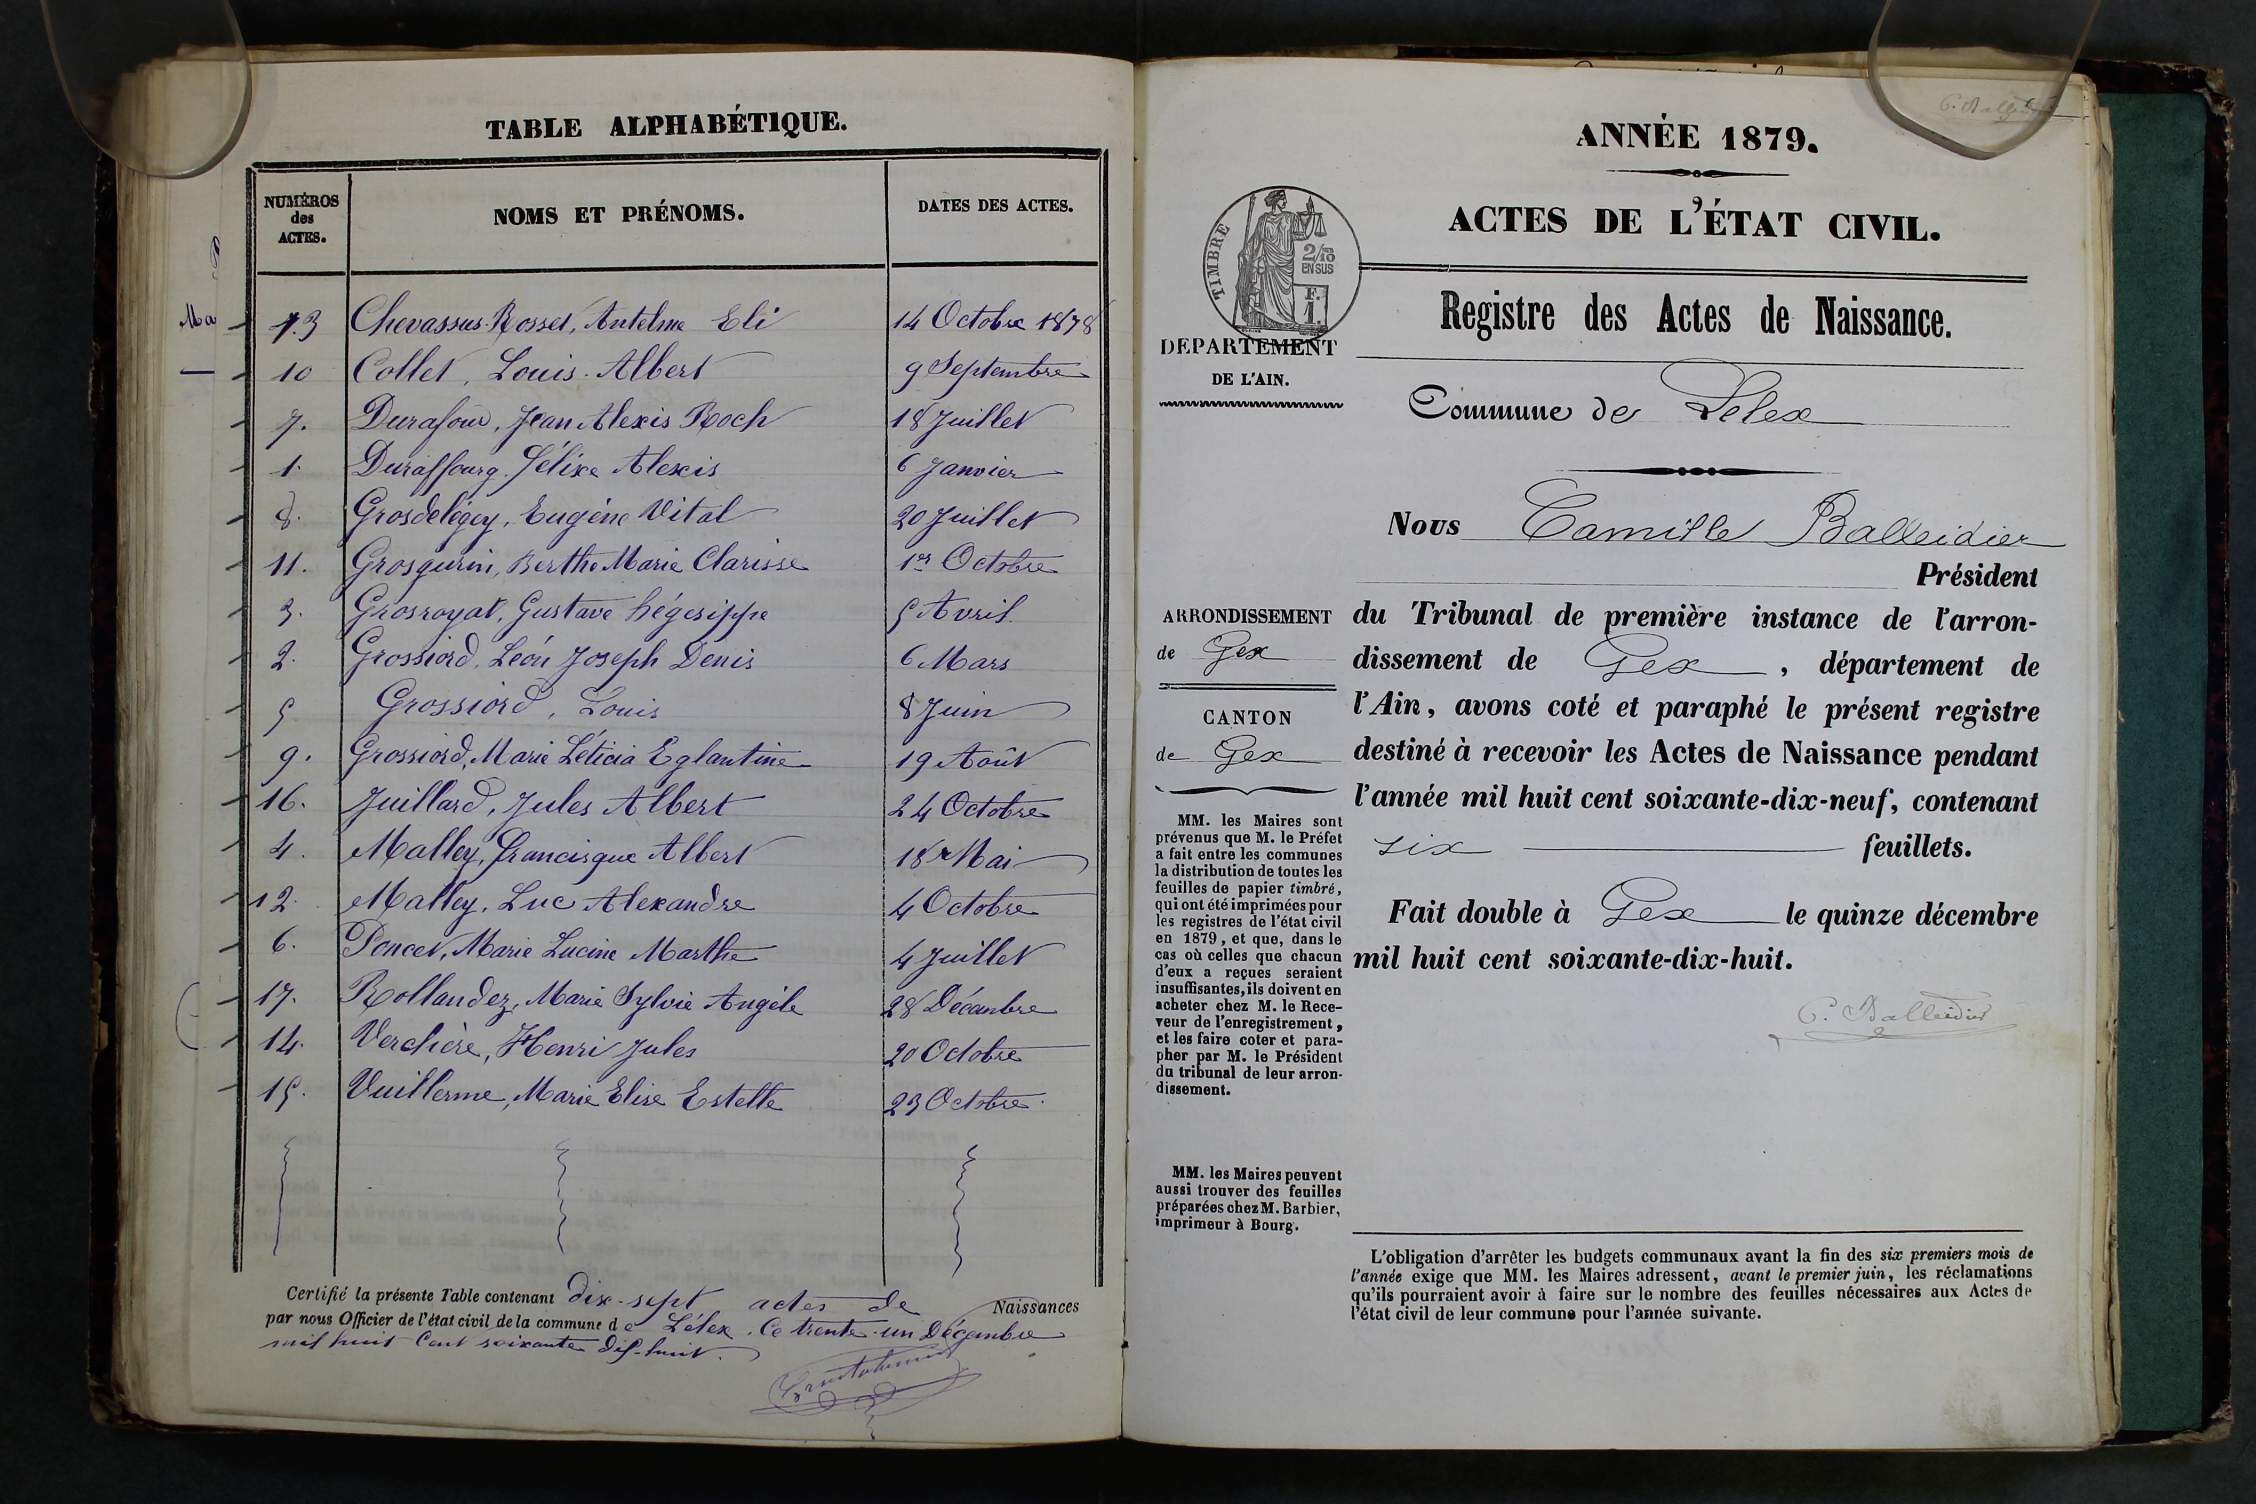 TABLE ALPHABÉTIQUE.
NUMÉROS des ACTES. NOMS ET PRÉNOMS. DATES DES ACTES.
Ma
13 Chevassus-Rosset, Antelme Eli 14 Octobre 1878
10 Collet, Louis Albert 9 Septembre
7. Durafour, Jean Alexis Roch 18 Juillet
1. Duraffourg. Félixe Alexis 6 Janvier
8. Grosdelégey, Eugène Vital 20 Juillet
11. Grosgurin, Berthe Marie Clarisse 1er Octobre
3. Grosroyat, Gustave hégesippe 5 Avril
2. Grossiord, Léon Joseph Denis 6 Mars
5 Grossiord, Louis 8 Juin
9. Grossiord, Marie Léticia Eglantine 19 Août
16. Juillard, Jules Albert 24 Octobre
4. Malley, Francisque Albert 18 Mai
12. Malley, Luc Alexandre 4 Octobre
6. Poncet, Marie Lucine Marthe 4 Juillet
17. Rollandez, Marie Sylvie Angèle 28 Décembre
14. Verchère, Henri Jules 20 Octobre
15. Vuillerme, Marie Elise Estelle 23 Octobre
Certifié la présente Table contenant dix-sept actes de Naissances
par nous Officier de l'état civil de la commune de Lélex. Ce trente-un Décembre
mil huit cent soixante dix-huit.
C. Balleidier
ANNÉE 1879.
ACTES DE L'ÉTAT CIVIL.
TIMBRE
2/10
EN SUS
F.
1.
Registre des Actes de Naissance.
DEPARTEMENT
DE L'AIN.
Commune de Lelex
Nous Camille Balleidier
Président
ARRONDISSEMENT
de Gex
CANTON
de Gex
du Tribunal de première instance de l'arron-
dissement de Gex, département de
l'Ain, avons coté et paraphé le présent registre
destiné à recevoir les Actes de Naissance pendant
l'année mil huit cent soixante-dix-neuf, contenant
six feuillets.
Fait double à Gex le quinze décembre
mil huit cent soixante-dix-huit.
C. Balleidier
MM. les Maires sont
prévenus que M. le Préfet
a fait entre les communes
la distribution de toutes les
feuilles de papier timbré,
qui ont été imprimées pour
les registres de l'état civil
en 1879, et que, dans le
cas où celles que chacun
d'eux a reçues seraient
insuffisantes, ils doivent en
acheter chez M. le Rece-
veur de l'enregistrement,
et les faire coter et para-
pher par M. le Président
du tribunal de leur arron-
dissement.
MM. les Maires peuvent
aussi trouver des feuilles
préparées chez M. Barbier,
imprimeur à Bourg.
L'obligation d'arrêter les budgets communaux avant la fin des six premiers mois de
l'année exige que MM. les Maires adressent, avant le premier juin, les réclamations
qu'ils pourraient avoir à faire sur le nombre des feuilles nécessaires aux Actes de
l'état civil de leur commune pour l'année suivante.